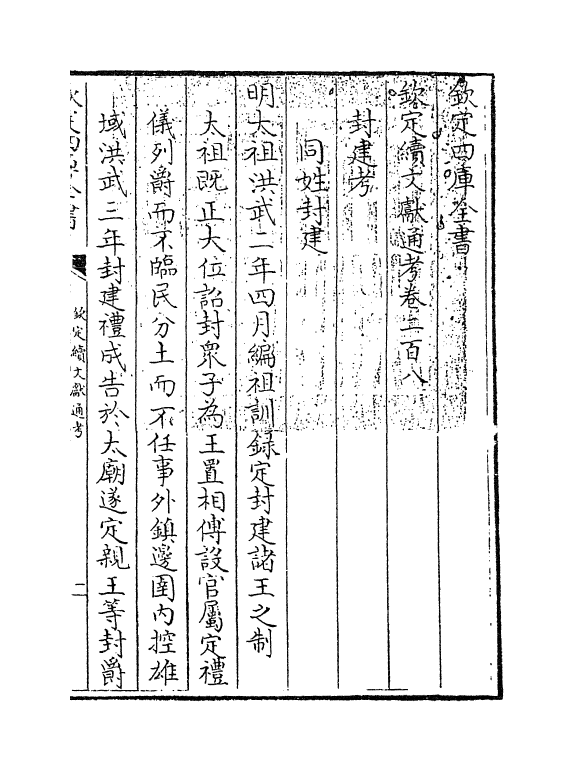 欽定四庫全書
欽定續文獻通考卷二百八
封建考
同姓封建
明太祖洪武二年四月編祖訓錄定封建諸王之制
太祖既正大位詔封衆子為王置相傅設官屬定禮
儀列爵而不臨民分土而不任事外鎮邊圉内控雄
域洪武三年封建禮成告於太廟遂定親王等封爵
欽定四庫全書
欽定續文獻通考